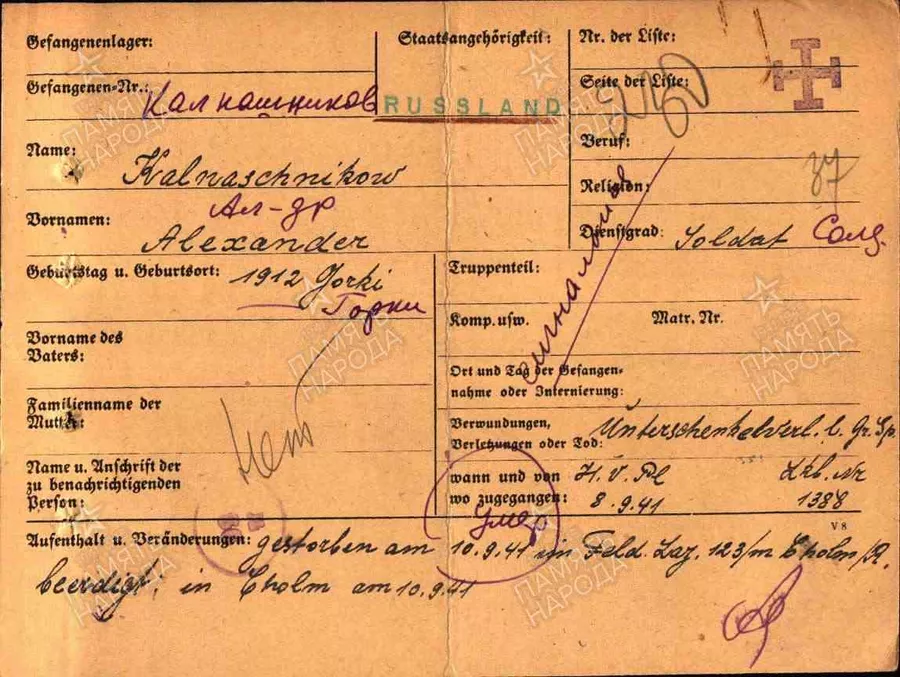 Gefangenenlager:
Staatsangehörigkeit:
Nr. der Liste:
Gefangenen-Nr.:
Калнашников
RUSSLAND
Seite der Liste:
Beruf:
Name:
Kalnaschnikow
Religion:
37
Ал-др
Vornamen:
Alexander
Dienstgrad: Soldat Солд.
Geburtstag u. Geburtsort: 1912 Gorki
Горки
Truppenteil:
Komp. usw.
Matr. Nr.
Vorname des
Vaters:
Ort und Tag der Gefangen-
nahme oder Internierung:
Familienname der
Mutter:
Verwundungen,
Verletzungen oder Tod:
Unterschenkelverl. l. Gr. Sp.
Name u. Anschrift der
zu benachrichtigenden
Person:
wann und von
wo zugegangen:
H. V. Pl
8.9.41
Lkb. Nr
1388
умер
V 8
Aufenthalt u. Veränderungen: gestorben am 10.9.41 im Feld. Laz. 123/m Cholm/R.
beerdigt: in Cholm am 10.9.41
ПАМЯТЬ
НАРОДА